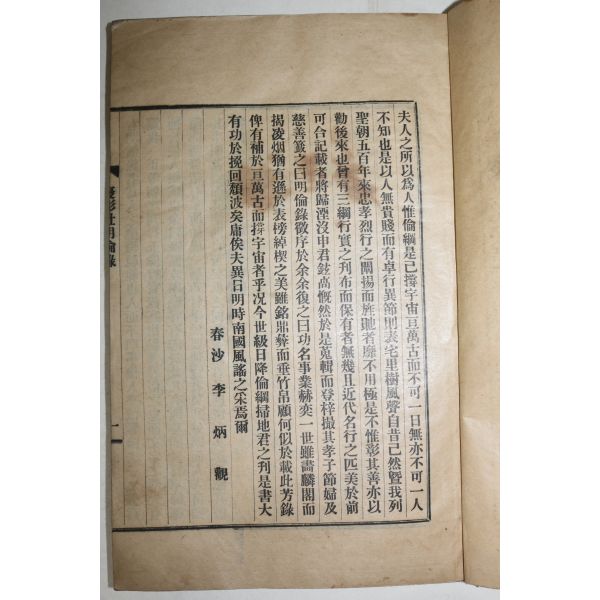 夫人之所以為人惟倫綱是已撐宇宙亘萬古而不可一日無亦不可一人
不知也是以人無貴賤而有卓行異節則表宅里樹風聲自昔已然曁我列
聖朝五百年來忠孝烈行之闡揚而旌貤者靡不用極是不惟彰其善亦以
勸後來也曾有三綱行實之刊布而保有者無幾且近代名行之匹美於前
可合記載者將歸湮沒申君鉉高慨然於是蒐輯而登梓撮其孝子節婦及
慈善簽之曰明倫錄徵序於余余復之曰功名事業赫奕一世雖畵麟閣而
揭凌烟猶有遜於表榜綽楔之美雖銘鼎彝而垂竹帛顧何似於載此芳錄
俾有補於亘萬古而撐宇宙者乎况今世級日降倫綱掃地君之刊是書大
有功於挽回頹波矣庸俟夫異日明時南國風謠之采焉爾
春沙李炳觀
明倫錄
一